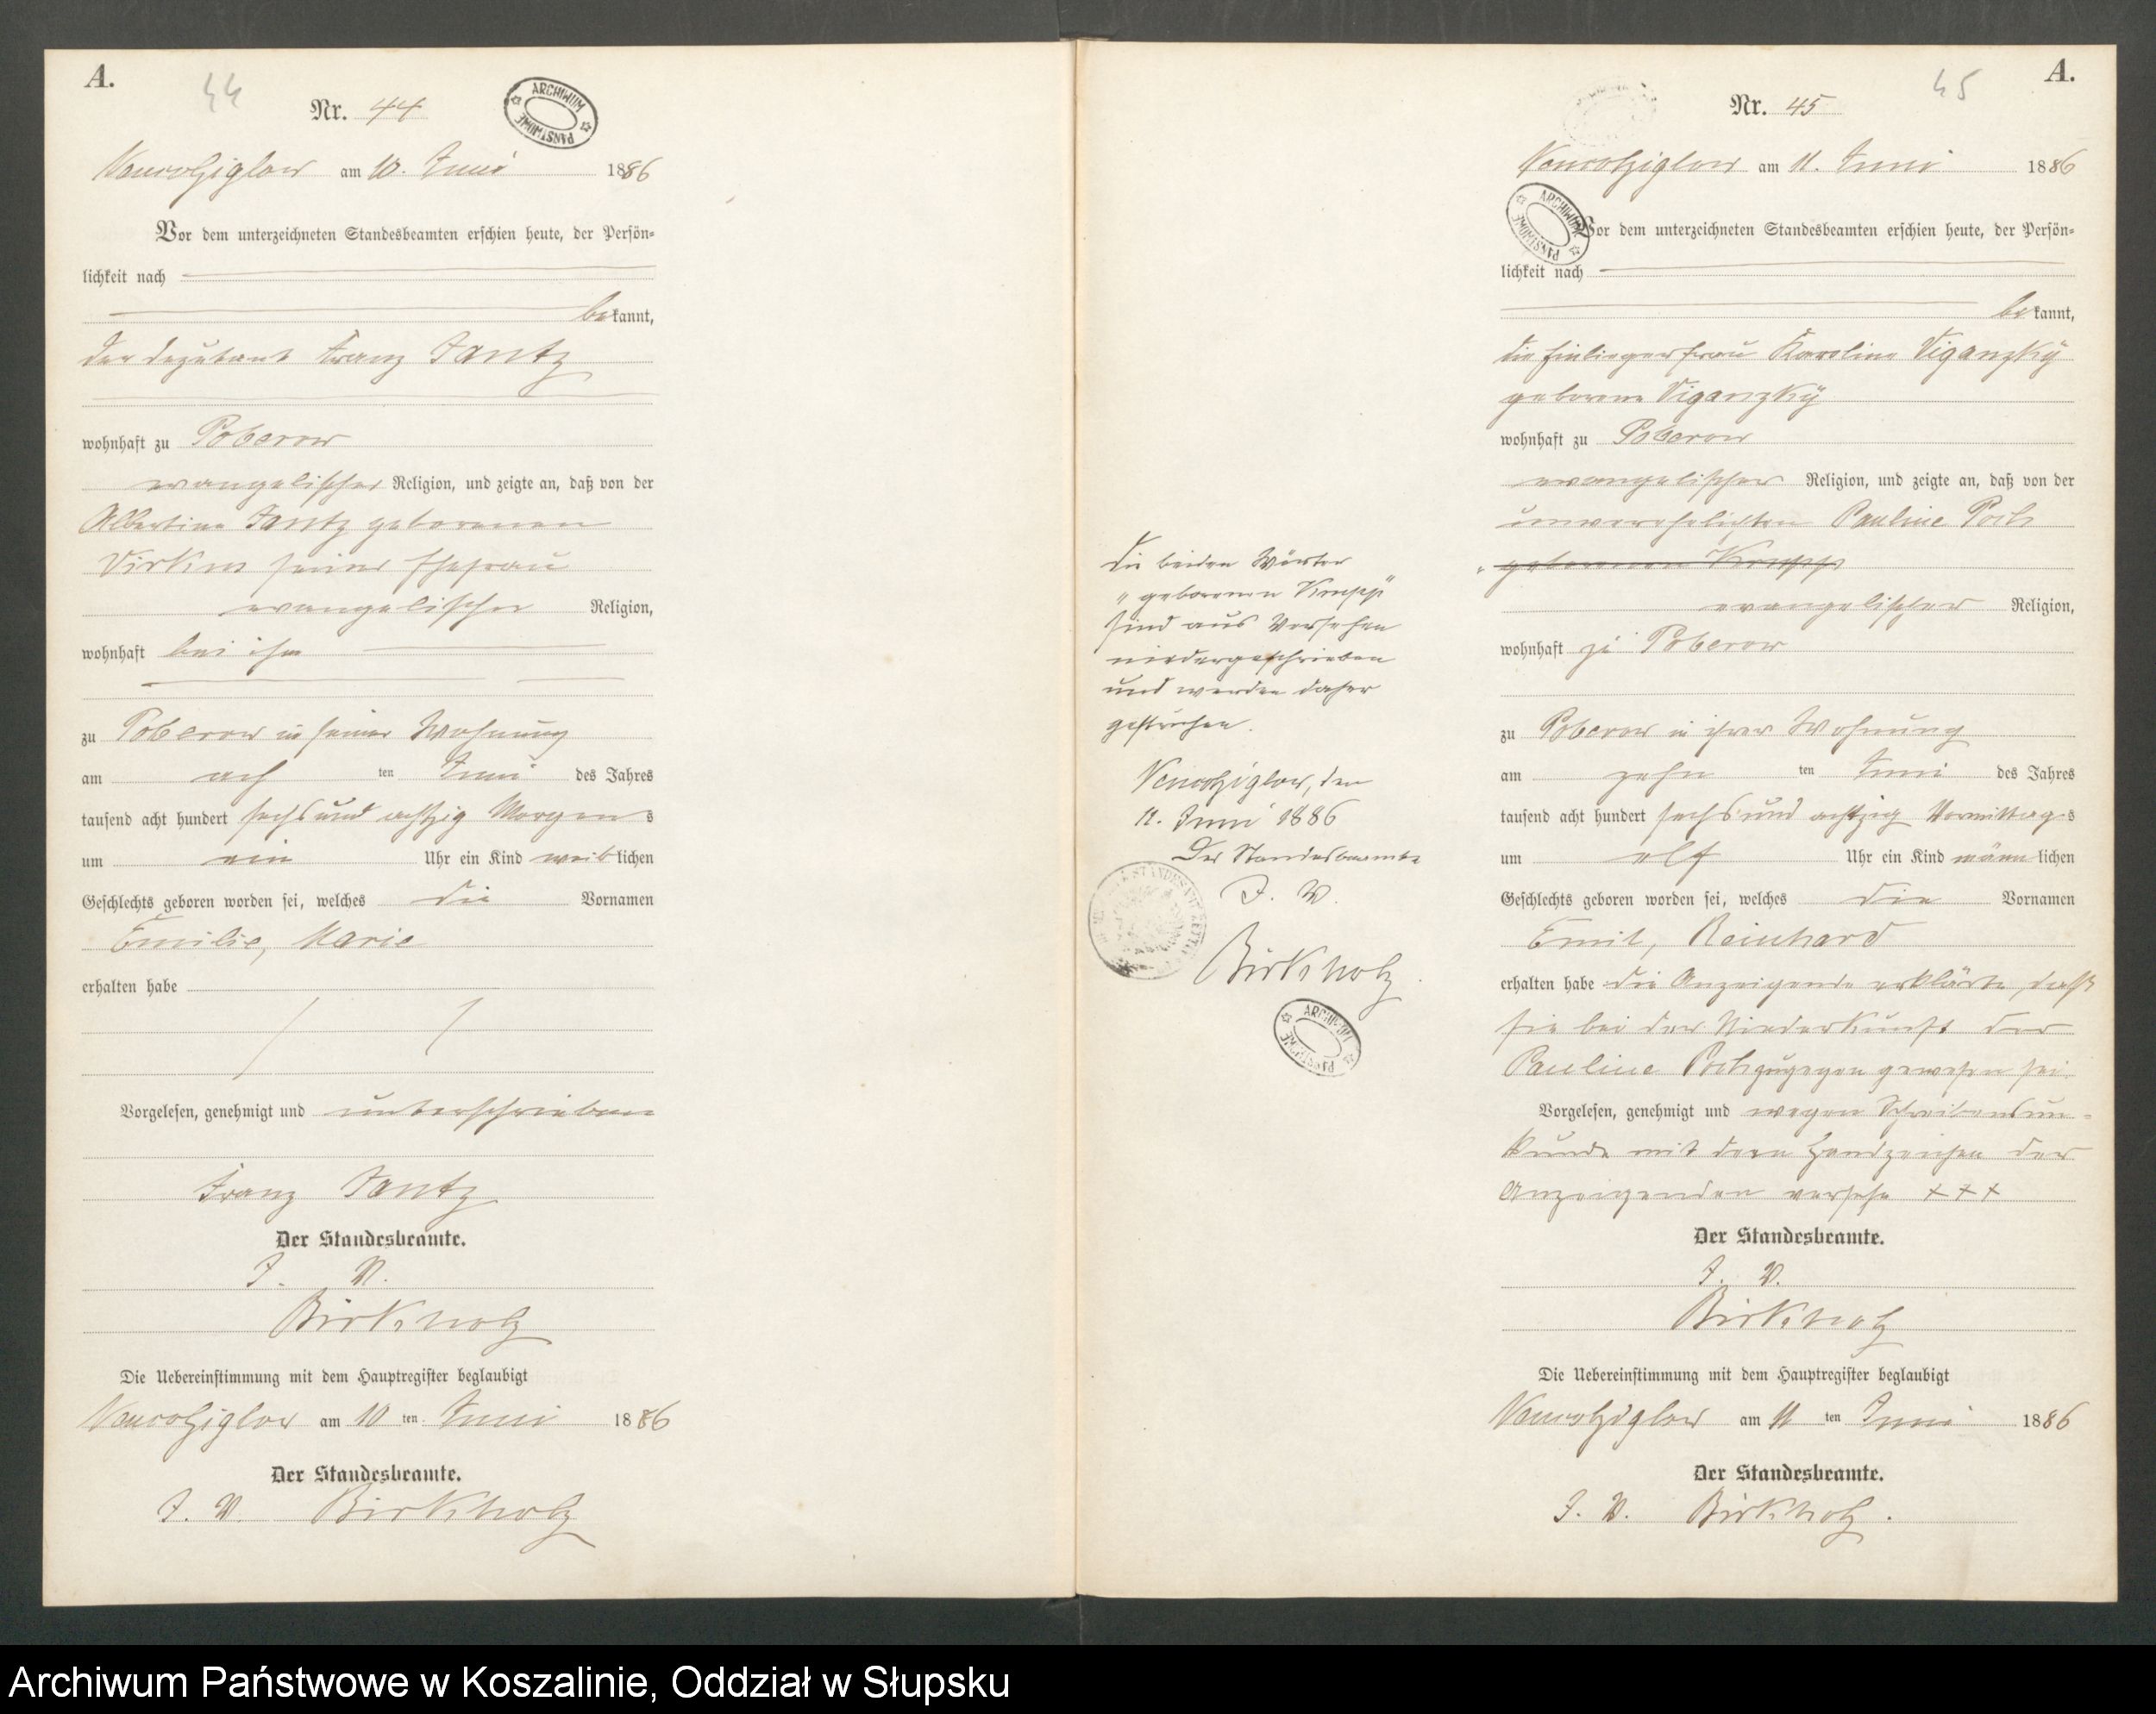 A.
44
Nr. 44
ARCHIWUM PAŃSTWOWE
am 10. Juni 1886
Vor dem unterzeichneten Standesbeamten erschien heute, der Persön-
lichkeit nach
bekannt,
der Deputant Franz Jantz
wohnhaft zu Poberow
evangelischer Religion, und zeigte an, daß von der
Albertine Jantz geborenen
seiner Ehefrau
evangelischer Religion,
wohnhaft bei ihm
zu Poberow in seiner Wohnung
am ach ten Juni des Jahres
tausend acht hundert sechs und achtzig Morgens
um ein Uhr ein Kind weiblichen
Geschlechts geboren worden sei, welches die Vornamen
Emilie, Marie
erhalten habe
Vorgelesen, genehmigt und unterschrieben
Franz Jantz
Der Standesbeamte.
J. V.
Birkholz
Die Uebereinstimmung mit dem Hauptregister beglaubigt
am 10 ten Juni 1886
Der Standesbeamte.
J. V. Birkholz
Die beiden Wörter
"geborenen Krupp"
sind aus Versehen
niedergeschrieben
und werden daher
gestrichen.
den
11. Juni 1886
Der Standesbeamte
J. V.
Birkholz.
ARCHIWUM PAŃSTWOWE
A.
45
Nr. 45
am 11. Juni 1886
ARCHIWUM PAŃSTWOWE
Vor dem unterzeichneten Standesbeamten erschien heute, der Persön-
lichkeit nach
bekannt,
die Einliegerfrau Karoline Viganzky
geborene Viganzky
wohnhaft zu Poberow
evangelischer Religion, und zeigte an, daß von der
unverehelichten Pauline Poch
geborenen Krupp
evangelischer Religion,
wohnhaft zu Poberow
zu Poberow in ihrer Wohnung
am zehn ten Juni des Jahres
tausend acht hundert sechs und achtzig Vormittags
um elf Uhr ein Kind männlichen
Geschlechts geboren worden sei, welches die Vornamen
Emil, Reinhard
erhalten habe die Anzeigende erklärte, daß
sie bei der Niederkunft der
Pauline Poch zugegen gewesen sei.
Vorgelesen, genehmigt und wegen Schreibensun-
kunde mit dem Handzeichen der
Anzeigenden versehn + + +
Der Standesbeamte.
J. V.
Birkholz
Die Uebereinstimmung mit dem Hauptregister beglaubigt
am 11 ten Juni 1886
Der Standesbeamte.
J. V. Birkholz.
Archiwum Państwowe w Koszalinie, Oddział w Słupsku